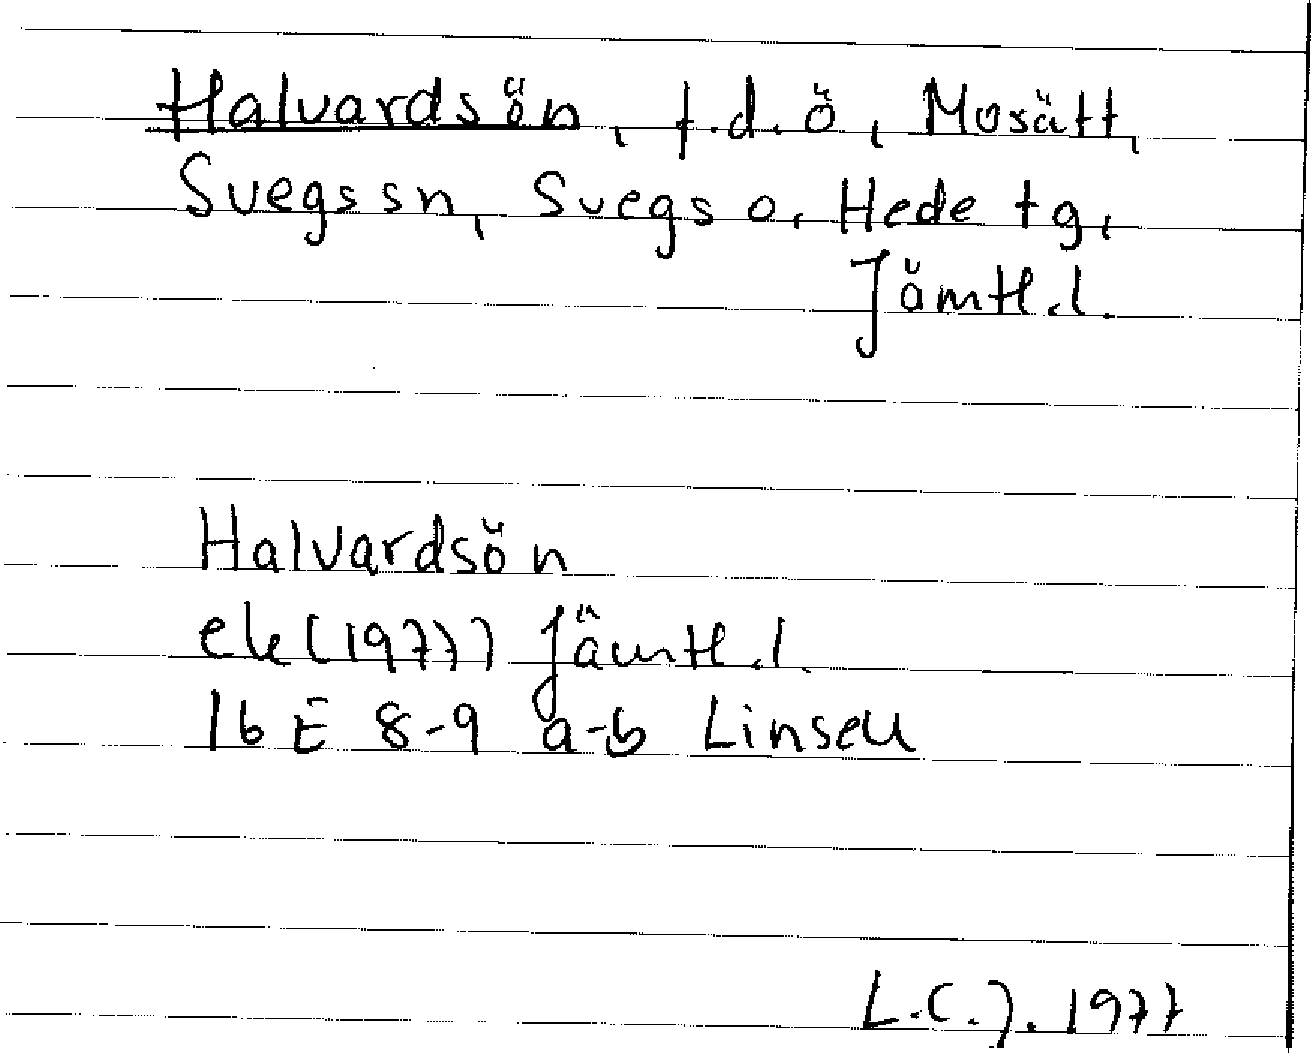 Halvardsön, f.d. ö, Mosätt,
Svegs sn, Svegs o, Hede tg,
Jämtl.l.
Halvardsön
ek (1977) Jämtl.l.
16 E 8-9 a-b Linsell
L.C.J. 1977